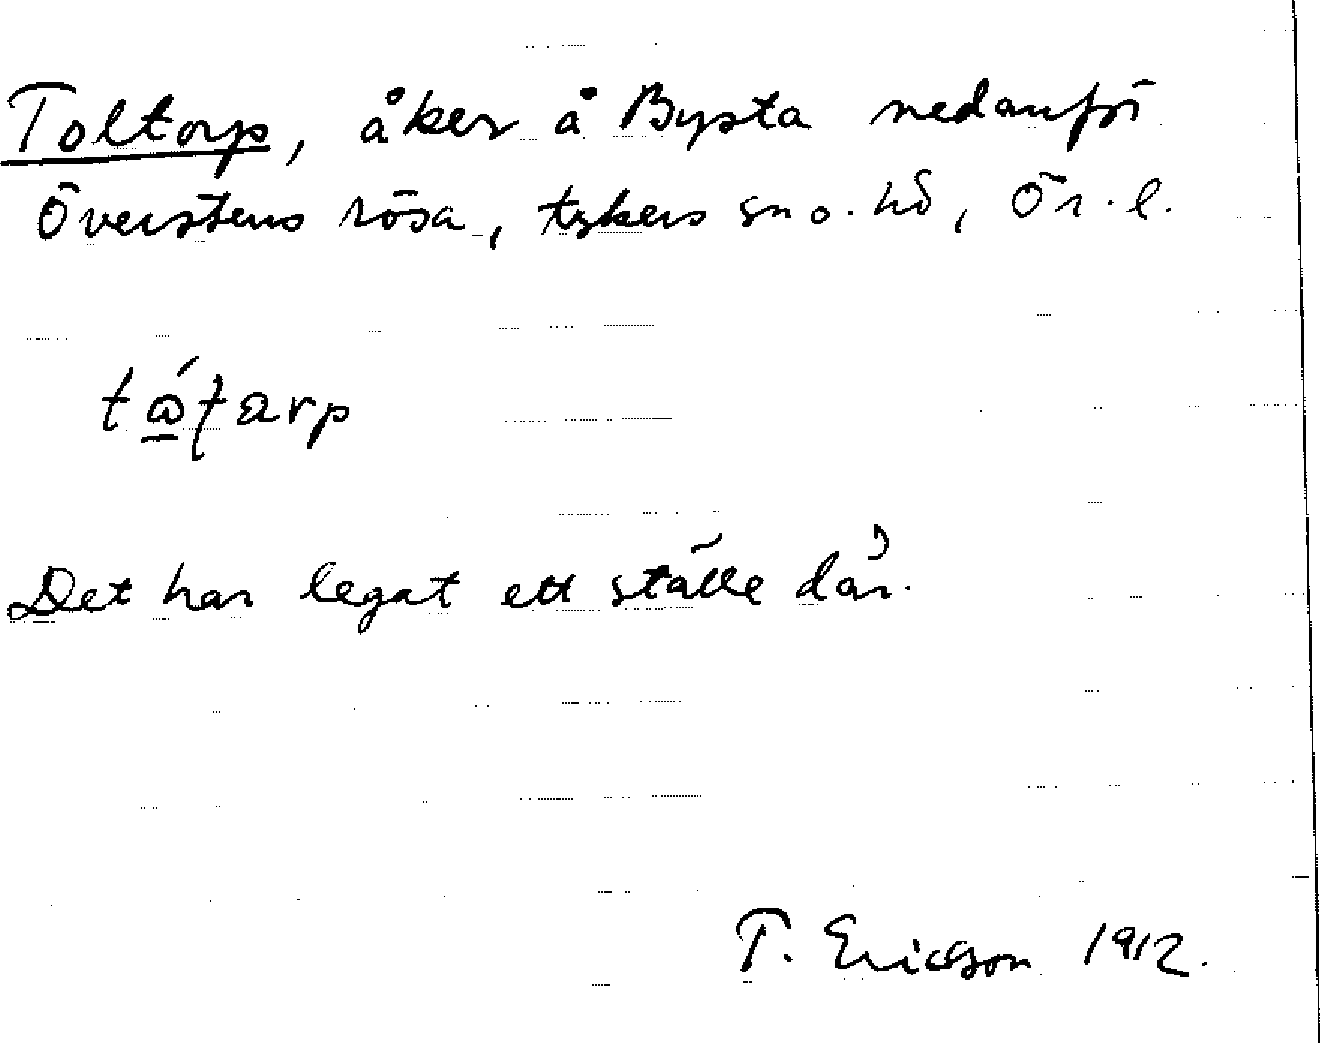 Toltorp, åker å Bysta nedanför
Överstens rösa, Lekers sn o. hd, Ör. l.
tåʈarp
Det har legat ett ställe där.
T. Ericson 1912.